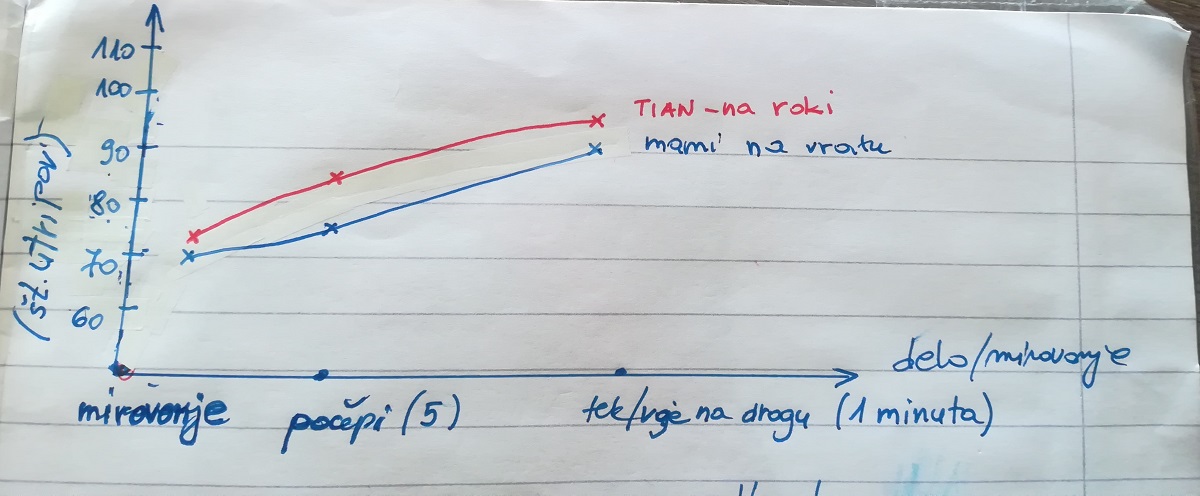 110
100
90
80
70
60
(št. utripov)
TIAN - na roki
mami na vratu
delo/mirovanje
mirovanje
počepi (5)
tek/vaje na drogu (1 minuta)